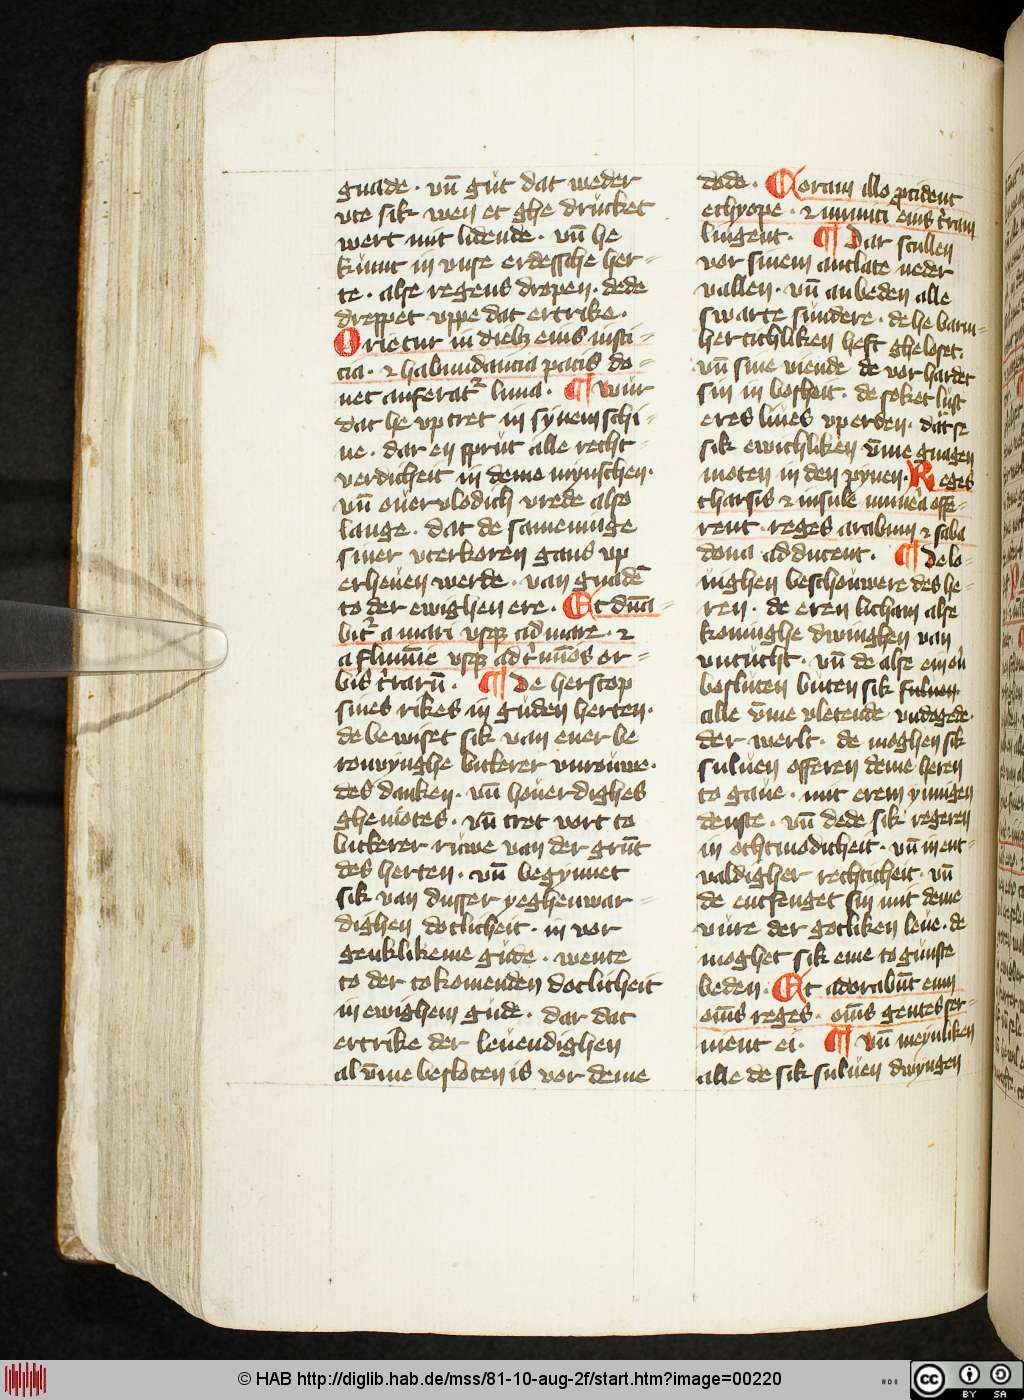 gnade · vn̄ gůt dat weder
vte sik wen et ghe drucket
wert mit lidende · vn̄ he
kůmt in vnse erdessche her-
te · alse regens dropen · dede
dreppet vppe dat ertrike ·
Orietur in dieb eius iusti-
cia · et habundancia pacis do-
nec auferat luna · ¶ Wur
dat he vp tret in synem schi-
ne · dar en sprůt alle recht-
verdicheit in deme mynschen ·
vn̄ ouervlodich vrede also
lange · dat de sameninge
siner vterkoren gans vp
erheuen werde · van gnadē
to der ewighen ere · Et dn̄a-
bit a mari usqꝫ ad mare · et
a flumīe usqꝫ ad tͥmīos or-
bis tͥrarū · ¶ De herscop
sines rikes in guden herten ·
de be wiset sik van ener be
rouwynghe bitterer vnrouwe ·
des danken · vn̄ houerdighes
ghemotes · vn̄ tret vort to
bitterer ruwe van der grūt
des herten · vn̄ begynnet
sik van dusser yeghenwar-
dighen dotlicheit · in vor
genklikeme gude · wente
to der tokomenden dotlicheit
in ewighem gude · dar dat
ertrike der leuendighen
al vm̄e besloten is vor deme
dode · Coram illo prcident
ethyope · et inimici eius tͥram
lingent · ¶ Dar scullen
vor sinem antlate neder
vallen · vn̄ anbeden alle
swarte sundere · de he barm-
hertichliken heft gheloset ·
vn̄ sine viende de vor hardet
sin in bosheit · de soket lust
eres liues vp erden · dat se
sik ewichliken vm̄e gnagen
moten in den pynen · Reges
tharsis et insule munera offe-
rent · reges arabum et saba
dona adducent · ¶ De ko-
nighen beschouwere des he-
ren · de eren licham alse
koninghe dwinghen van
vntucht · vn̄ de alse
besluten buten sik suluen
alle vm̄e vletende vndogede ·
der werlt · de moghen sik
suluen offeren deme heren
to gaue · mit erem ynnigen
denste · vn̄ dede sik regeren
in othmodicheit · vn̄ in ent-
valdigher rechticheit · vn̄
de entfenget sin mit deme
vure der gotliken leue · de
moghet sik eme to gunste
beden · Et adorabūt eum
om̄s reges · om̄s gentes ser-
uient ei · ¶ Vn̄ meynliken
alle de sik suluen dwyngen
© HAB http://diglib.hab.de/mss/81-10-aug-2f/start.htm?image=00220
cc BY SA